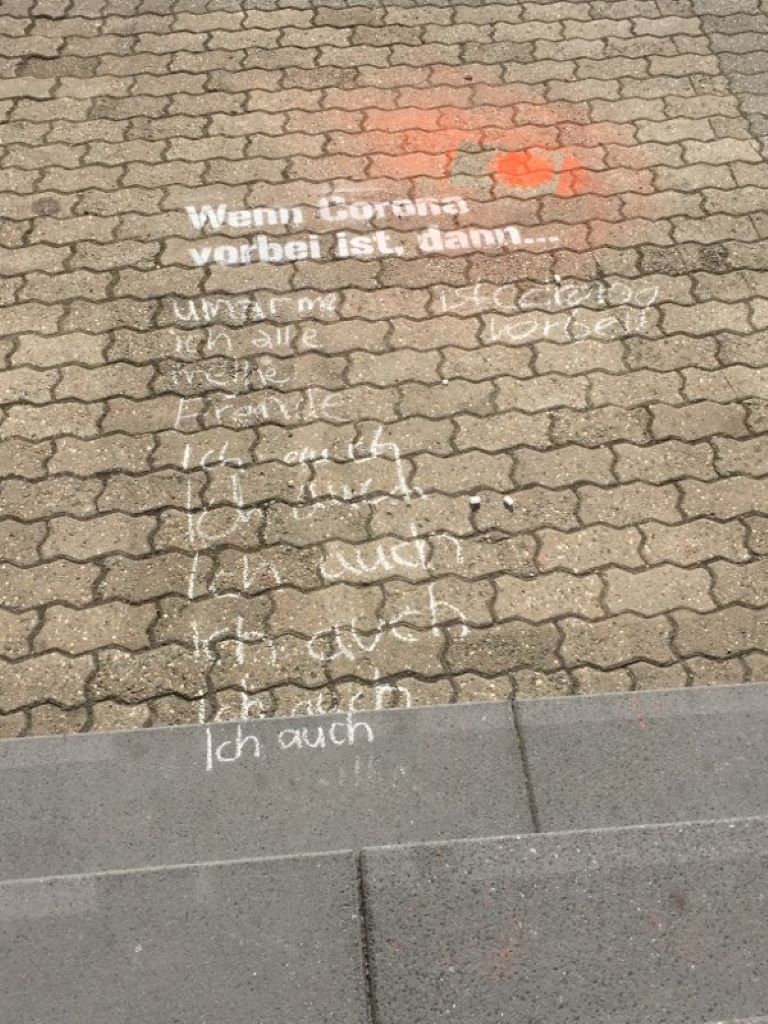 Wenn Corona
vorbei ist, dann...
umarme
ich alle
meine
Freunde
ist Corona
vorbei!
Ich auch
Ich auch
Ich auch
Ich auch
Ich auch
Ich auch